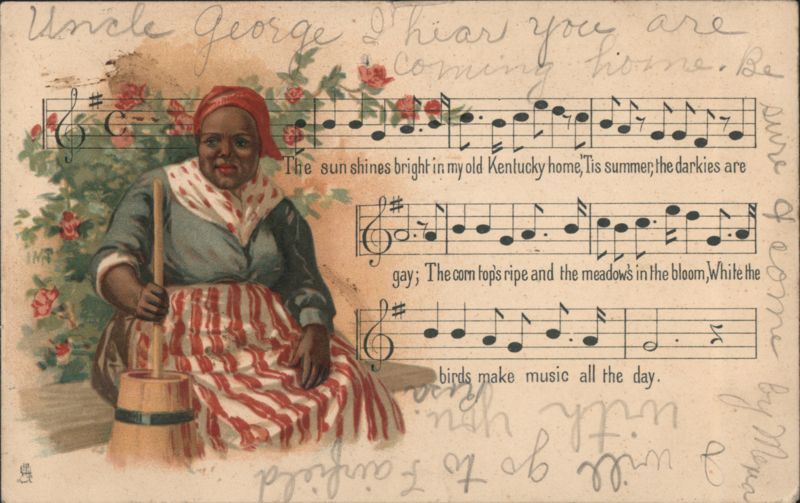 Uncle George I hear you are
coming home. Be
sure & come
by Mama
I
will go to Fairfield
with you.
Rosa
The sun shines bright in my old Kentucky home, 'Tis summer, the darkies are
gay; The corn top's ripe and the meadow's in the bloom, While the
birds make music all the day.